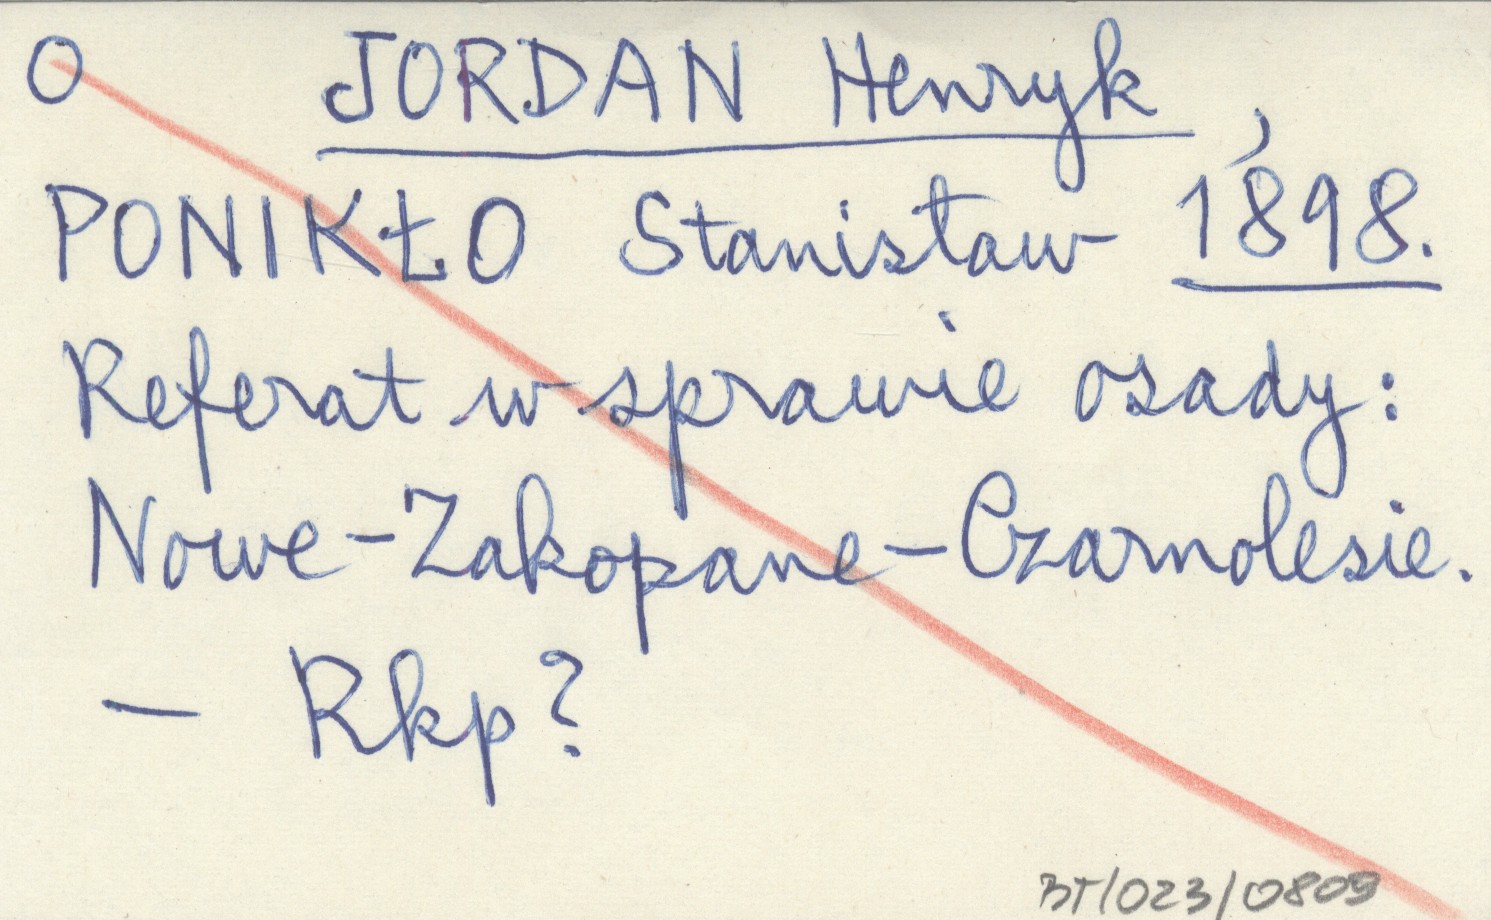 O JORDAN Henryk,
PONIKŁO Stanisław 1898.
Referat w sprawie osady:
Nowe-Zakopane-Czarnolesie.
— Rkp?
BT/023/0809